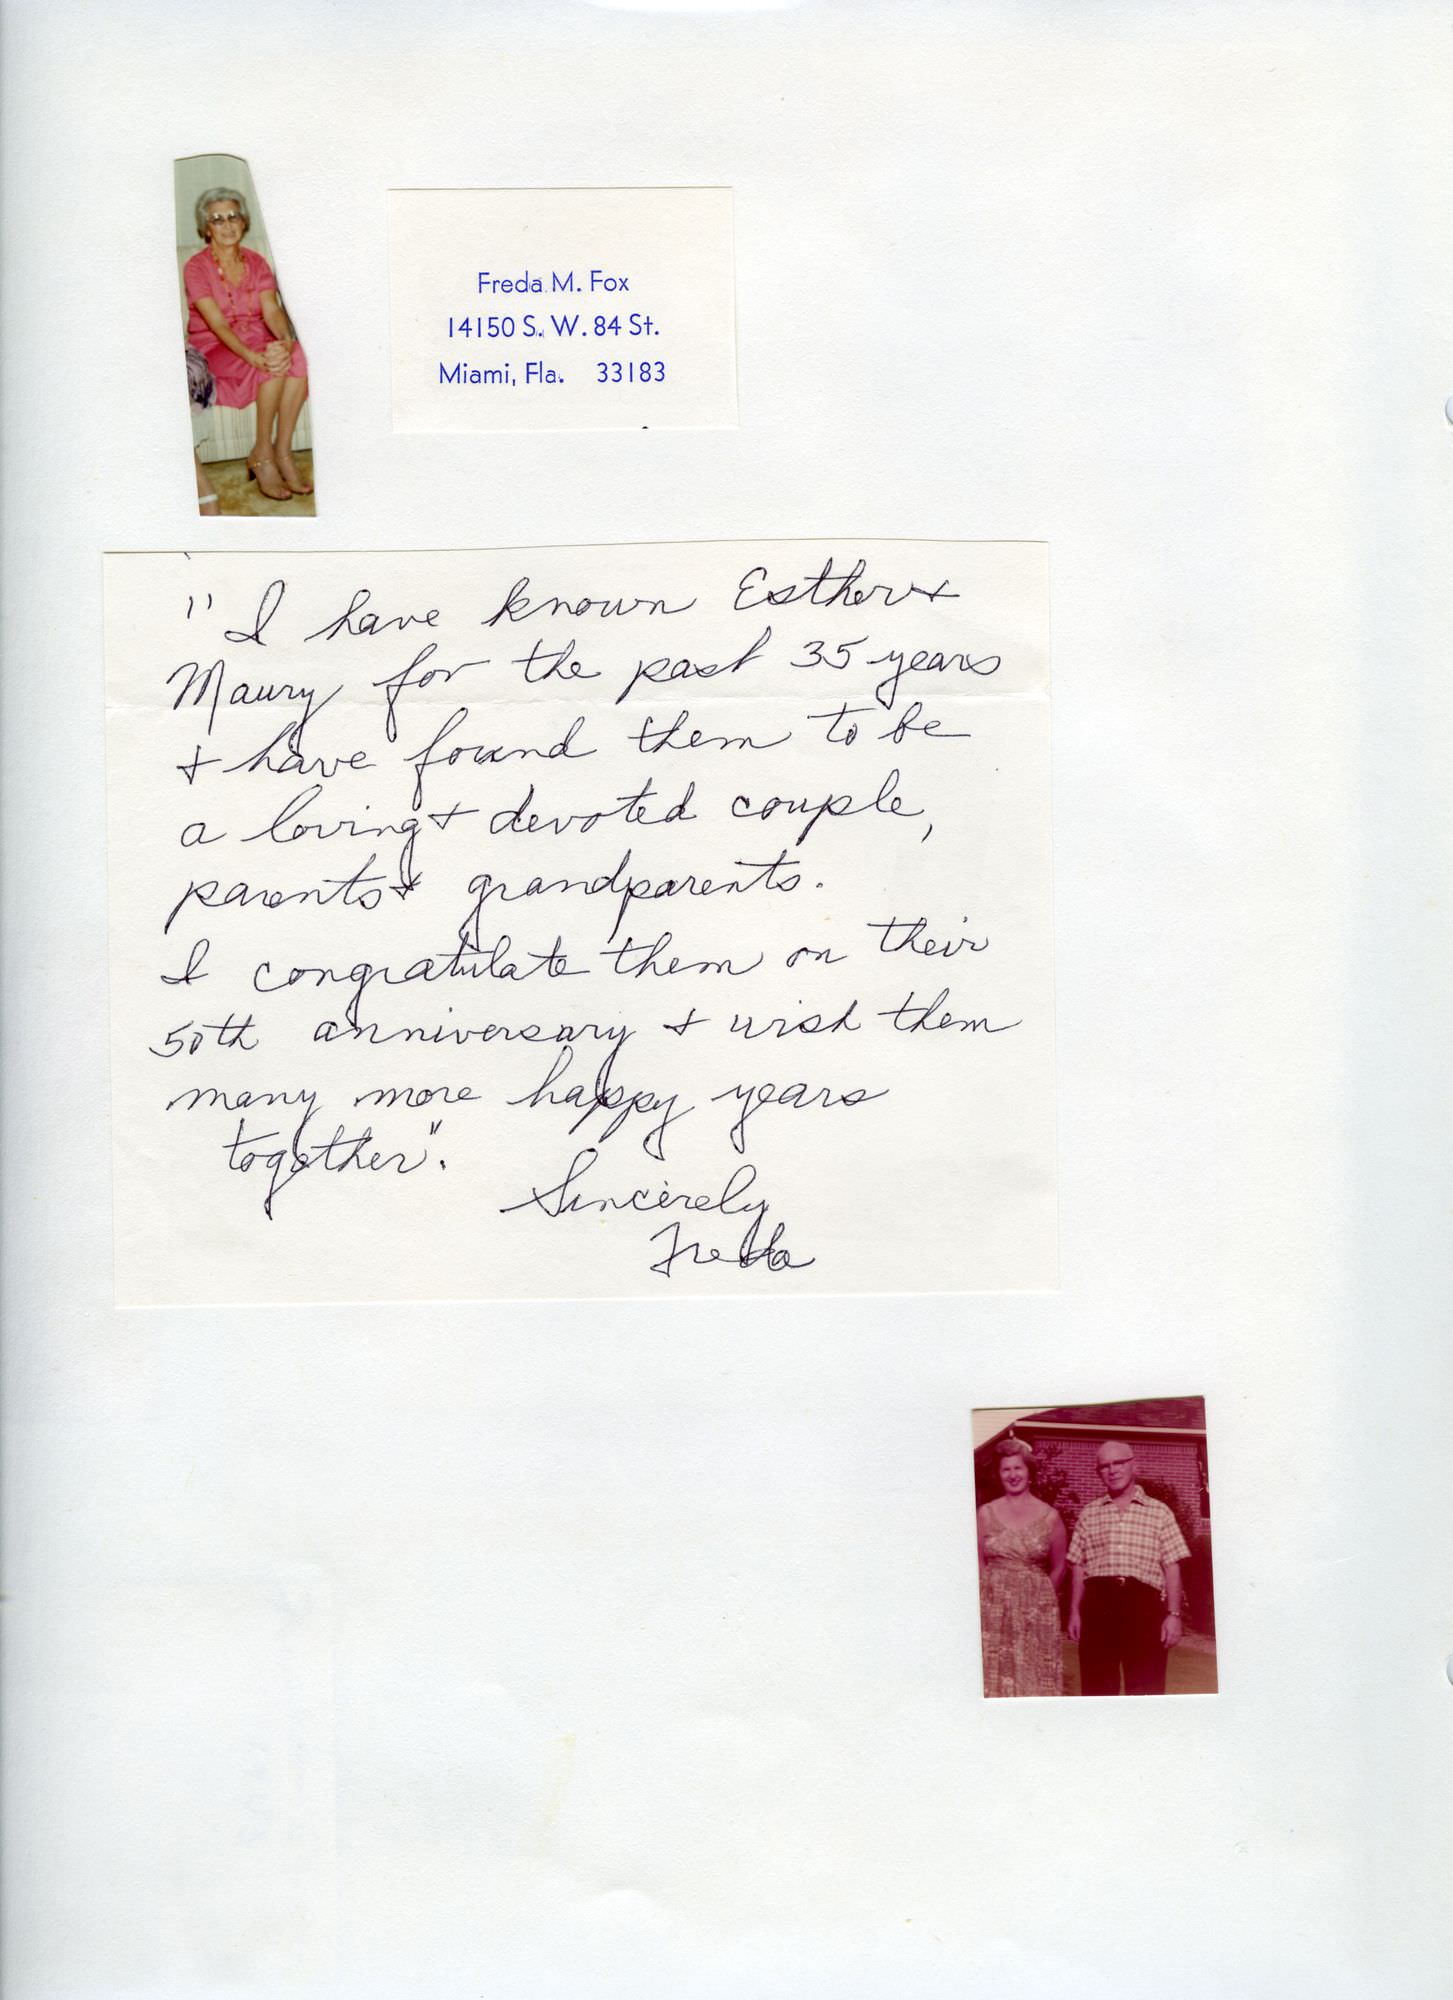 Freda M. Fox
14150 S. W. 84 St.
Miami, Fla. 33183
"I have known Esther &
Maury for the past 35 years
& have found them to be
a loving & devoted couple,
parents & grandparents.
I congratulate them on their
50th anniversary & wish them
many more happy years
together".
Sincerely
Freda